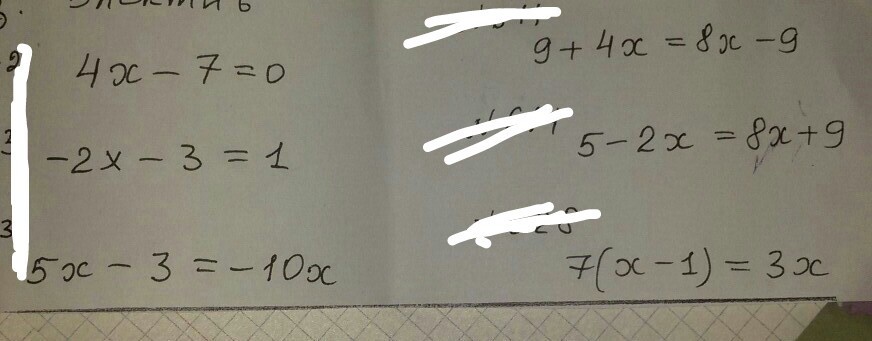 4x - 7 = 0
-2x - 3 = 1
5x - 3 = -10x
9 + 4x = 8x - 9
5 - 2x = 8x + 9
7(x - 1) = 3x